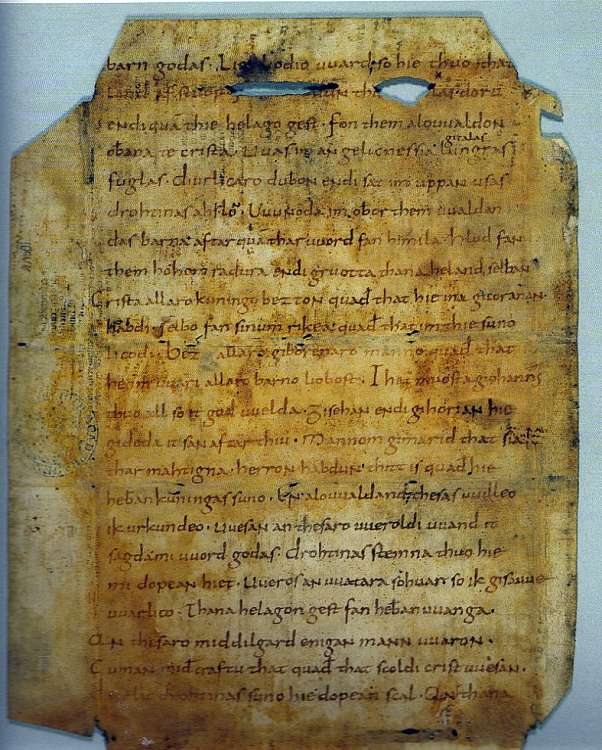 barn godas. Lio liodio uuard so hie thuo that
endi quā thie helago gest. fon them alouualdon
obana te crista. Uuas im an gelicnessia lungras gitalas
fuglas. diurlicaro dubon endi sat im uppan usas
drohtinas ahslo. Uuunoda im obar them uualdan
das barna. aftar quā thar uuord fan himila. hlud fan
them hohom radura. endi gruotta thana heland selban
Crista allaro kuningo bezton quađ that hie ina gicoranan
habdi. selbo fan sinum rikea. quađ that im thie suno
licodi. bezt allaro giboranaro manno quađ that
he im uuari allaro barno liobost. That muosta iohannis
thuo all so it god uuelda. gisehan endi gihorian hie
gideda it san aftar thiu. Mannom gimarid that sia
thar mahtigna. herron habdun. thitt is quađ hie
hebankuningas suno. En alouualdand. thesas uuilleo
ik urkundeo. Uuesan an thesaro uueroldi uuand it
sagda mi uuord godas. drohtinas stemna thuo hie
mi dopean hiet. Uueros an uuatara so huar so ik gisauue
uuarlico. Thana helagon gest fan heban uuanga.
An thesaro middilgard enigan mann uuaron.
Cuman mid craftu that quađ that scoldi crist uuesan.
diurlic drohtinas suno hie dopean scal. An thana